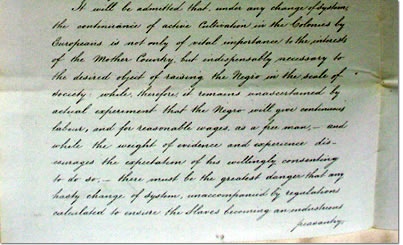 It will be admitted that, under any change of system,
the continuance of active Cultivation in the Colonies by
Europeans is not only of vital importance to the interests
of the Mother Country, but indispensably necessary to
the desired object of raising the Negro in the scale of
society: while, therefore, it remains unascertained by
actual experiment that the Negro will give continuous
labour, and for reasonable wages, as a free man,— and
while the weight of evidence and experience dis-
courages the expectation of his willingly consenting
to do so,— there must be the greatest danger that any
hasty change of system, unaccompanied by regulations
calculated to ensure the Slaves becoming an industrious
peasantry,